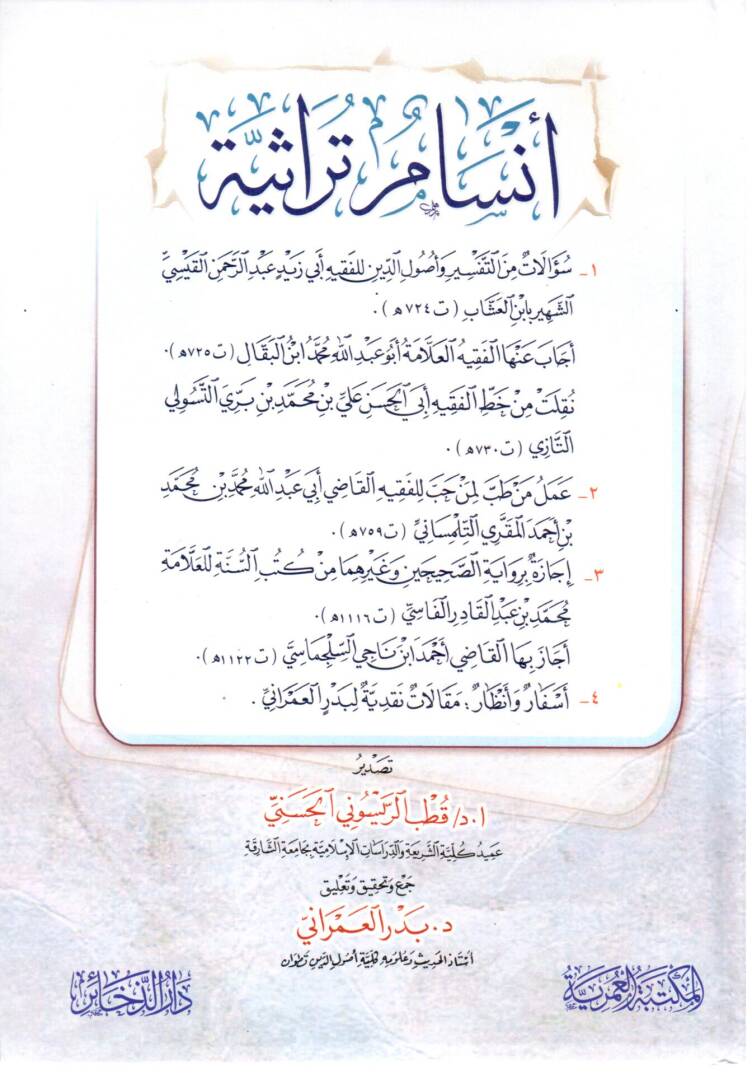 أنسام تراثية
١- سُؤَالَاتٌ مِنَ التَّفْسِيرِ وَأُصُولِ الدِّينِ لِلْفَقِيهِ أَبِي زَيْدٍ عَبْدِ الرَّحْمَنِ القَيْسِيِّ
الشَّهِيرِ بِابْنِ العَشَّابِ (ت ٧٢٤هـ).
أَجَابَ عَنْهَا الفَقِيهُ العَلَّامَةُ أَبُو عَبْدِ اللهِ مُحَمَّدُ ابْنُ البَقَّالِ (ت ٧٢٥هـ).
نُقِلَتْ مِنْ خَطِّ الفَقِيهِ أَبِي الحَسَنِ عَلِيِّ بْنِ مُحَمَّدِ بْنِ بَرِّيّ التَّسُولِي
التَّازِي (ت ٧٣٠هـ).
٢- عَمَلُ مَنْ طَبَّ لِمَنْ حَبَّ لِلْفَقِيهِ القَاضِي أَبِي عَبْدِ اللهِ مُحَمَّدِ بْنِ مُحَمَّدِ
بْنِ أَحْمَدَ المَقَّرِي التِّلِمْسَانِيِّ (ت ٧٥٩هـ).
٣- إِجَازَةٌ بِرِوَايَةِ الصَّحِيحَيْنِ وَغَيْرِهِمَا مِنْ كُتُبِ السُّنَّةِ لِلْعَلَّامَةِ
مُحَمَّدِ بْنِ عَبْدِ القَادِرِ الفَاسِيِّ (ت ١١١٦هـ).
أَجَازَ بِهَا القَاضِي أَحْمَدَ ابْنَ نَاجِي السِّلْجِمَاسِيَّ (ت ١١٢٢هـ).
٤- أَسْفَارٌ وَأَنْظَارٌ: مَقَالَاتٌ نَقْدِيَّةٌ لِبَدْرٍ العَمْرَانِيِّ.
تَصْدِيرُ
ا.د/ قُطْب الرَّيْسُونِي الحَسَنِيِّ
عَمِيدُ كُلِّيَّةِ الشَّرِيعَةِ وَالدِّرَاسَاتِ الإِسْلَامِيَّةِ بِجَامِعَةِ الشَّارِقَةِ
جَمْعُ وَتَحْقِيقُ وَتَعْلِيقُ
د. بَدْر العَمْرَانِيّ
أُسْتَاذُ الحَدِيثِ وَعُلُومِهِ كُلِّيَّةِ أُصُولِ الدِّينِ تَطْوَان
المكتبة العمرية
دار الذخائر